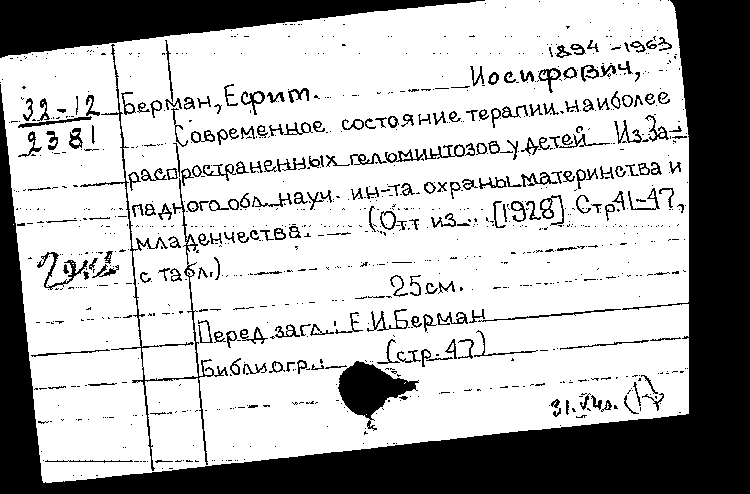 1894-1963
32-12 Берман, Ефрит. Иосифович,
2381 Современное состояние терапии наиболее
распространенных гельминтозов у детей Из За-
падного обл. науч. ин-та охраны материнства и
младенчества. (Отт из... [1928] Стр.41-47,
с табл.)
25см.
Перед загл.: Е.И.Берман
Библиогр.: (стр.47)
31.